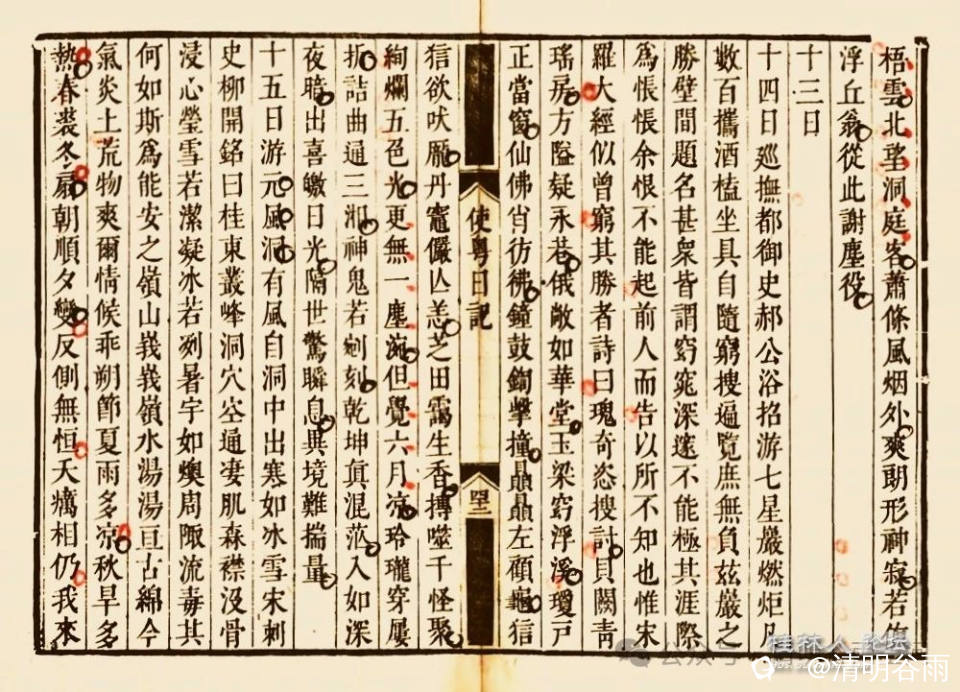 梧雲北望洞庭客蕭條風烟外爽朗形神寂若
浮丘翁從此謝塵役
十三日
十四日巡撫都御史郝公浴招游七星巖燃炬凡
數百攜酒榼坐具自隨窮搜遍覽庶無負茲巖之
勝壁間題名甚衆皆謂窈窕深邃不能極其涯際
爲悵悵余恨不能起前人而告以所不知也惟宋
羅大經似曾窮其勝者詩曰瑰奇恣搜討貝闕青
瑤房方隘疑永巷俄敞如華堂玉梁窈浮溪瓊戸
正當窗仙佛肖彷彿鐘鼓鍧擊撞贔贔左顧龜狺
使粤日記
狺欲吠厖丹竈儼亾恙芝田靄生香摶噬千怪聚
絢爛五色光更無一塵涴但覺六月凉玲瓏穿屢
折詰曲通三湘神鬼若剜刻乾坤眞混茫入如深
夜暗出喜皦日光隔世驚瞬息異境難揣量
十五日游元風洞有風自洞中出寒如冰雪宋刺
史柳開銘曰桂東叢峰洞穴空通凄肌森襟没骨
浸心瑩雪若潔凝冰若冽暑宇如燠周陬流毒其
何如斯爲能安之嶺山峩峩嶺水湯湯亘古綿今
氣炎土荒物爽爾情候乖朔節夏雨多凉秋旱多
熱春裘冬扇朝順夕變反側無恒夭癘相仍我來
桂林人论坛
公众号
@清明谷雨